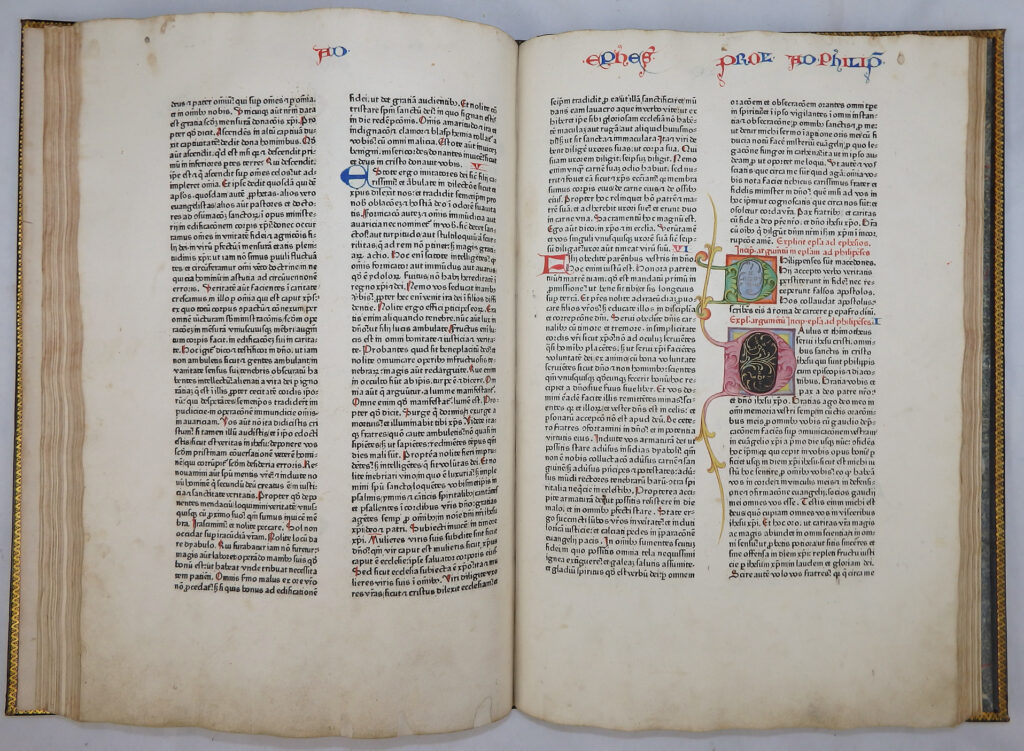 AD
deus et pater omniū qui sup omnes et p omnia
et in omnib nobis. Unicuiq aūt nr̄m data
est gratia scdm̄ mensurā donacōis xp̄i. Pro
pter qd̓ dicit. Ascendēs in altū captiuā du
xit captiuitatē: dedit dona hominibus. Qd̓
aūt ascendit. qd̓ est nisi qr̄ et descendit pri
mū in inferiores ptes terre? Qui descendit:
ipe est et qui ascendit sup omnes celos: ut ad
impleret omia. Et ipe dedit quosdā quidē
apostolos. quosdam autē prophetas. alios vero
euangelistas: alios aut̄ pastores et docto
res ad
in edificacōnem corpis xp̄i: donec occur
ramus omnes in unitatē fidei et agnicōis
lij dei in virū pfectū in mensurā etatis pleni
tudinis xp̄i: ut iam nō simus puuli fluctuā
tes
quia hominū in astucia ad circumuentionē
erroris. Veritatē aut̄ facientes in caritate
crescamus in illo p omnia qui est caput xp̄s:
ex quo totū corpus
tum corpis facit in edificacōnem sui in carita
te. Hoc igit̄ dico et testificor in dn̄o: ut iam
non ambuletis sicut et gentes ambulant in
vanitate sensus sui: tenebris obscuratū ha
bentes intellectū: alienati a vita dei p igno
rantiā
que est in illis propter cecitatē cordis ipo
rū: qui desperātes semetipos tradiderūt im
pudicicie in operacōnē immundicie omnis
in auaritiam. Vos aut̄ nō ita didicistis cri
stum: si tamen illū audistis: et in ipo edocti
estis sicut est veritas in ihesu: deponere vos
scdm pristinam couersationē veterē homi
nē: qui corrūpit̄ scdm desideria erroris. Re
nouamini aūt spū mentis vr̄e: et induite no
uū hominē: qui secundū deū creatus est in iusti
cia et sanctitate veritatis. Propter qd̓ depo
nentes mendaciū loquimini veritatē vnus
quisq cū primo suo: qm̄ sumus inuicē mē
bra. Irascimini: et nolite peccare. Sol non
occidat sup iracūdiā vram. Nolite locū da
re dyabolo. Qui furabatur iam nō furetur:
magis aut̄ laboret operādo manib suis qd̓
bonū est: ut habeat unde tribuat necessita
tem patienti. Omnis sermo malus ex ore vr̄o
nō procedat: sed si quis bonus ad edificationē
fidei: ut det gratiā audientib. Et nolite cō
tristare spm̄ sanctū dei: in quo signati estis
in die redēpcōnis. Omnis amaritudo et ira et
indignacō et clamor et blasphemia tollatur a
vobis: cū omni malicia. Estote aūt inuicē
benigni. misericordes: donantes inuicē sicut
et deus in cristo donauit vobis. V
Estote ergo imitatores dei: sicut filij ca
rissimi: et ambulate in dilectōne sicut et
xpus dilexit nos: et tradidit semetipm̄ pro
nob oblacōem et hostiā deo in odorē suauita
tis. Fornicacio autē et omnis immūdicia aut
auaricia nec nominetur in vobis: sicut decet san
ctos: aut turpitudo aut stultiloquiū aut scur
rilitas que ad rem nō ptinet: sed magis grati
arū actio. Hoc em̄ scitote intelligētes: qd̓
omnis fornicator aut immūdus aut auarus
qd̓ est ydolorū seruitus nō habet hereditatē in
regno xp̄i et dei. Nemo vos seducat inanib
verbis: propter hec em̄ venit ira dei in filios diffi
dentie. Nolite ergo effici participes eorū. Era
tis enim aliquando tenebre: nūc aut̄ lux in
dn̄o: ut filij lucis ambulate. Fructus em̄ lu
cis est in omni bonitate et iusticia et verita
te. Probantes quid sit beneplacitū deo: et
nolite cōmunicare operib infructuosis te
nebrarū: magis aut̄ redarguite. Que enim
in occulto fiūt ab ipis. turpe est et dicere. Om
nia aut̄ que arguunt̄. a lumine manifestant̄.
Omne enim qd̓ manifestatur lumē est. Pro
pter qd̓ dicit. Surge qui dormis: et exurge a
mortuis: et illuminabit tibi xpus. Videte ita
q fratres: quō caute ambuletis: nō quasi in
sipiētes: sed ut sapiētes: redimētes tēpus qm̄
dies mali sūt. Proptea nolite fieri impru
dētes: sed intelligētes que sit voluntas dei. Et no
lite inebriari vino: in quo est luxuria: sed imple
mini spū sancto: loquētes vobismetipis in
psalmis et ymnis et cāticis spiritalib: cantātes
et psallentes in cordib vris dn̄o: gratias
agētes semp p omnib: in noīe dn̄i nr̄i ihesu
xp̄i deo et patri. Subiecti inuicē in timore
xp̄i. Mulieres viris suis subdite sint sicut
dn̄o: qm̄ vir caput est mulieris: sicut xpus
caput est ecclesie: ipe saluator corporis eius.
Sed sicut ecclesia subiecta est xp̄o: ita et mu
lieres viris suis in omnib. Viri diligite vxo
res vr̄as: sicut et cristus dilexit ecclesiam: et
EPHES
seipm̄ tradidit p ea: ut illā sanctificaret: mū
dans eam lauacro aque in verbo vite: ut ex
hiberet ipe sibi gloriosam ecclesiā nō habē
tē maculā aut rugā aut aliquid huiusmo
di: sed ut sit sancta et immaculata. Ita et viri de
bent diligere uxores suas: ut corpora sua. Qui
suam uxorem diligit. seipsū diligit. Nemo
enim vnquam carnē suā odio habuit. sed nu
trit et fouet eā: sicut et xpus ecclesiā: qr̄ membra
sumus corpis eius: de carne eius et de ossibus
eius. Propter hoc relinquet homo patrē et ma
trē suā. et adherebit uxori sue: et erunt duo
in carne vna. Sacramentū hoc magnū est.
Ego aūt dico. in cristo et in ecclesia. Verūtamē
et vos singuli vnusquisq uxorē suā sicut seip
sū diligat: uxor aūt timeat virū suū. VI
Filij obedite parentibus vestris in dn̄o.
Hoc enim iustū est. Honora patrem
tuū et matrē tuam. qd̓ est mandatū primū in p
missione: ut bene sit tibi: et sis longeuus
sup terrā. Et patres nolite ad iracūdiā puo
care filios vr̄os: sed educate illos in disciplia
et correptione dn̄i. Serui obedite dn̄is car
nalib cū timore et tremore. in simplicitate
cordis vr̄i sicut xp̄o: nō ad oculū seruiētes
quasi homib placētes: sed ut serui xp̄i: faciētes
voluntatē dei ex animo: cū bona voluntate
seruiētes sicut dn̄o et non hominib: scientes
qm̄ vnusquisq qd̓cunq fecerit bonū hoc re
cipiet a dn̄o: siue seruus siue liber. Et vos do
mini eadē facite illis: remittētes minas: sci
entes qr̄ et illorū et vester dn̄s est in celis: et p
sonarū acceptio nō est apud deū. De cetero
fratres cōfortamini in dn̄o. et in potentia
virtutis eius. Induite vos armaturā dei: ut
possitis stare aduersus insidias dyaboli: qm̄
non est nobis colluctacō aduersus carnē et san
guinē: sed aduersus principes et potestates: aduer
sus mūdi rectores tenebrarū harū: cōtra spi
ritalia nequicie in celestib. Propterea acci
pite armaturā dei: ut possitis resistere in die
malo. et in omnib pfecti stare. State er
go succincti lūbos vr̄os in veritate: et induti
loricā iusticie: et calciati pedes in preparationē
euangelij pacis. In omnib sumentes scutū
fidei: in quo possitis omnia tela nequissimi
ignea extiguere: et galeā salutis assumite:
et gladiū spiritus qd̓ est verbū dei: p omnem
PROL AD PHILIP
oracōnem et obsecracōem orantes omni tpe
in spiritu: et in ipo vigilantes in omni instan
tia et obsecracōne p omnib sanctis: et p me:
ut detur michi sermo in apertione oris mei cū fi
ducia notū facere misteriū euāgelij: p quo le
gacōne fungor in cathena: ita ut in ipo aus
deam put oportet me loqui. Ut aut̄ et vos
sciatis que circa me sūt: quid agā: omnia vo
bis nota faciet tichicus carissimus frater et
fidelis minister in dn̄o: quē misi ad vos in
hoc ipm: ut cognoscatis que circa nos sūt: et
cōsoletur corda vr̄a. Pax fratrib et caritas
cū fide a deo patre nr̄o. et dn̄o ihesu xp̄o. Gra
tia cū omib qui diligūt dn̄m nr̄m ihm̄ xp̄m in incor
ruptione. amē. Explicit epistola ad ephesios.
Incip argumentū in epistolam ad philipenses
Philipenses sūt macedones.
Hij accepto verbo veritatis
perstiterunt in fide: nec re
ceperunt falsos apostolos.
Hos collaudat apostolus
scribēs eis a roma de carcere p epafroditū.
Explicit argumentū Incip epistola ad philipenses. I
Paulus et thimotheus
serui ihesu cristi. omni
bus sanctis in cristo
ihesu qui sunt philippis
cum episcopis et diaco
nibus. Gratia vobis et
pax a deo patre nr̄o:
et dn̄o ihesu xp̄o. Gratias ago deo meo in
omni memoria vestri semper in cūctis oracōni
bus meis p omnib vobis cū gaudio depre
cacōnem faciēs sup cōmunicacōne vestra
in euangelio xp̄i a prima die usq nūc: cōfidēs
hoc ipm̄: quia qui cepit in vobis opus bonū p
ficiet usq in diem xp̄i ihesu: sicut est michi iu
stū hoc sentire p omnib vobis: eo qd̓ habeā
vos in corde: et in vinculis meis: et in defensi
one et confirmacōne euangelij. socios gaudij
mei omnes vos esse. Testis enim michi est
deus quō cupiam omnes vos in visceribus
ihesu xp̄i. Et hoc oro. ut caritas vr̄a magis
ac magis abundet in omni scientia: et in om
ni sensu: ut probetis potiora: ut sitis sinceres et
sine offensa in diem xp̄i: repleti fructu iusti
cie p ihesum xp̄m in laudem et gloriam dei.
Scire autē volo vos fratres: qr̄ que circa me